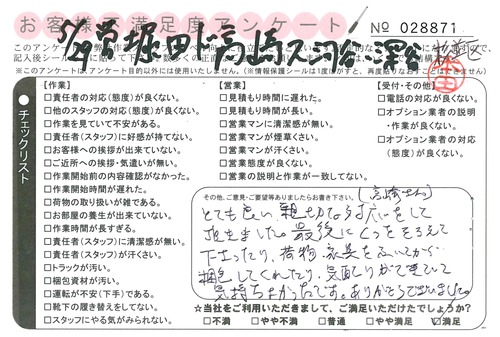 お客様満足度アンケート
№ 028871
【作業】
□責任者の対応(態度)が良くない。
□他のスタッフの対応(態度)が良くない。
□作業を見ていて不安がある。
□責任者(スタッフ)に好感が持てない。
□お客様への挨拶が出来ていない。
□ご近所への挨拶・気遣いが無い。
□作業開始前の内容確認がなかった。
□作業開始時間が遅れた。
□荷物の取り扱いが雑である。
□お部屋の養生が出来ていない。
□作業時間が長すぎる。
□責任者(スタッフ)に清潔感が無い。
□責任者(スタッフ)が汗くさい。
□トラックが汚い。
□梱包資材が汚い。
□運転が不安(下手)である。
□靴下の履き替えをしてない。
□スタッフにやる気がみられない。
【営業】
□見積もり時間に遅れた。
□見積もり時間が長い。
□営業マンに清潔感が無い。
□営業マンが煙草くさい。
□営業マンが汗くさい。
□営業態度が良くない。
□営業の説明と作業が一致してない。
【受付・その他】
□電話の対応が良くない。
□オプション業者の説明
・作業が良くない。
□オプション業者の対応
(態度)が良くない。
チェックリスト
その他、ご意見・ご要望等ありましたらお書き下さい。
(高崎さん)
とても良い、親切な
頂きました。最後にくつをそろえて
下さったり、荷物、家具をふいてから
梱包してくれたり、気配りができていて
気持ちよかったです。ありがとうございました。
☆当社をご利用いただきまして、ご満足いただけたでしょうか?
□不満 □やや不満 □普通 □やや満足 ☑満足